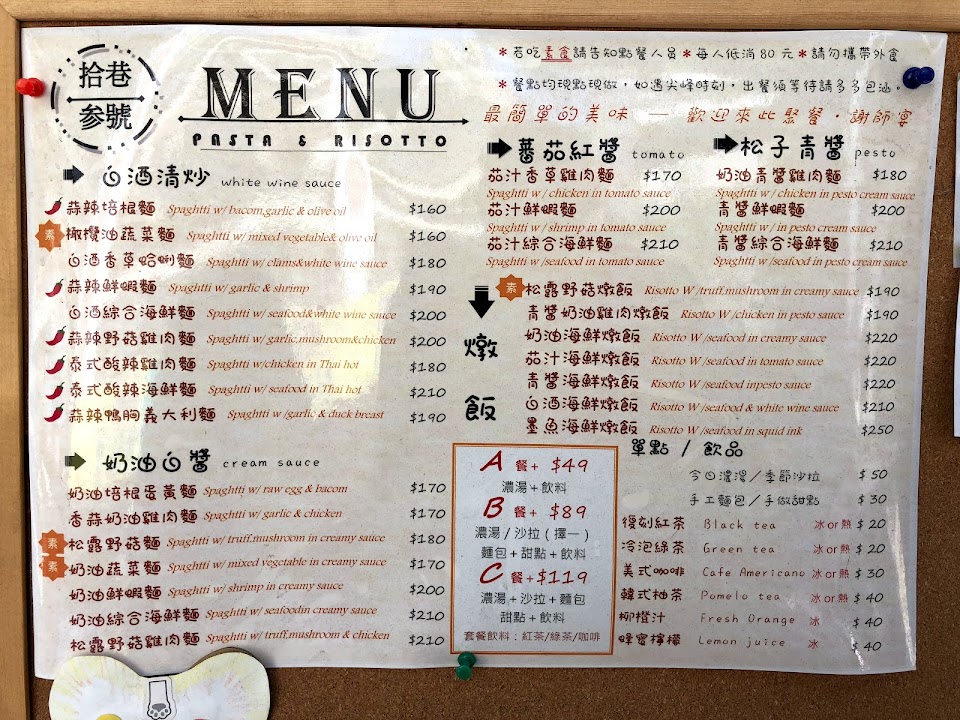 拾巷
参號
MENU
PASTA & RISOTTO
*若吃素食請告知點餐人員*每人低消 80 元*請勿攜帶外食
*餐點均現點現做，如遇尖峰時刻，出餐須等待請多多包涵。
最簡單的美味 — 歡迎來此聚餐·謝師宴
白酒清炒 white wine sauce
蒜辣培根麵 Spaghtti w/ bacom,garlic & olive oil $160
素 橄欖油蔬菜麵 Spaghtti w/ mixed vegetable& olive oil $160
白酒香草蛤蜊麵 Spaghtti w/ clams&white wine sauce $180
蒜辣鮮蝦麵 Spaghtti w/ garlic & shrimp $190
白酒綜合海鮮麵 Spaghtti w/ seafood&white wine sauce $200
蒜辣野菇雞肉麵 Spaghtti w/ garlic,mushroom&chicken $200
泰式酸辣雞肉麵 Spaghtti w/chicken in Thai hot $180
泰式酸辣海鮮麵 Spaghtti w/ seafood in Thai hot $210
蒜辣鴨胸義大利麵 Spaghtti w /garlic & duck breast $190
奶油白醬 cream sauce
奶油培根蛋黃麵 Spaghtti w/ raw egg & bacom $170
香蒜奶油雞肉麵 Spaghtti w/ garlic & chicken $170
素 松露野菇麵 Spaghtti w/ truff.mushroom in creamy sauce $180
素 奶油蔬菜麵 Spaghtti w/ mixed vegetable in creamy sauce $170
奶油鮮蝦麵 Spaghtti w/ shrimp in creamy sauce $200
奶油綜合海鮮麵 Spaghtti w/ seafoodin creamy sauce $210
松露野菇雞肉麵 Spaghtti w/ truff,mushroom & chicken $210
蕃茄紅醬 tomato
茄汁香草雞肉麵 $170
Spaghtti w / chicken in tomato sauce
茄汁鮮蝦麵 $200
Spaghtti w /shrimp in tomato sauce
茄汁綜合海鮮麵 $210
Spaghtti w /seafood in tomato sauce
松子青醬 pesto
奶油青醬雞肉麵 $180
Spaghtti w / chicken in pesto cream sauce
青醬鮮蝦麵 $200
Spaghtti w / in pesto cream sauce
青醬綜合海鮮麵 $210
Spaghtti w /seafood in pesto cream sauce
燉飯
素 松露野菇燉飯 Risotto W /truff,mushroom in creamy sauce $190
青醬奶油雞肉燉飯 Risotto W /chicken in pesto sauce $190
奶油海鮮燉飯 Risotto W /seafood in creamy sauce $220
茄汁海鮮燉飯 Risotto W /seafood in tomato sauce $220
青醬海鮮燉飯 Risotto W /seafood inpesto sauce $220
白酒海鮮燉飯 Risotto W /seafood & white wine sauce $210
墨魚海鮮燉飯 Risotto W /seafood in squid ink $250
A 餐+ $49
濃湯+飲料
B 餐+ $89
濃湯/沙拉(擇一)
麵包+甜點+飲料
C 餐+$119
濃湯+沙拉+麵包
甜點+飲料
套餐飲料：紅茶/綠茶/咖啡
單點 / 飲品
今日濃湯/季節沙拉 $ 50
手工麵包/手做甜點 $ 30
復刻紅茶 Black tea 冰or熱 $ 20
冷泡綠茶 Green tea 冰or熱 $ 20
美式咖啡 Cafe Americano 冰or熱 $ 30
韓式柚茶 Pomelo tea 冰or熱 $ 40
柳橙汁 Fresh Orange 冰 $ 40
蜂蜜檸檬 Lemon juice 冰 $ 40